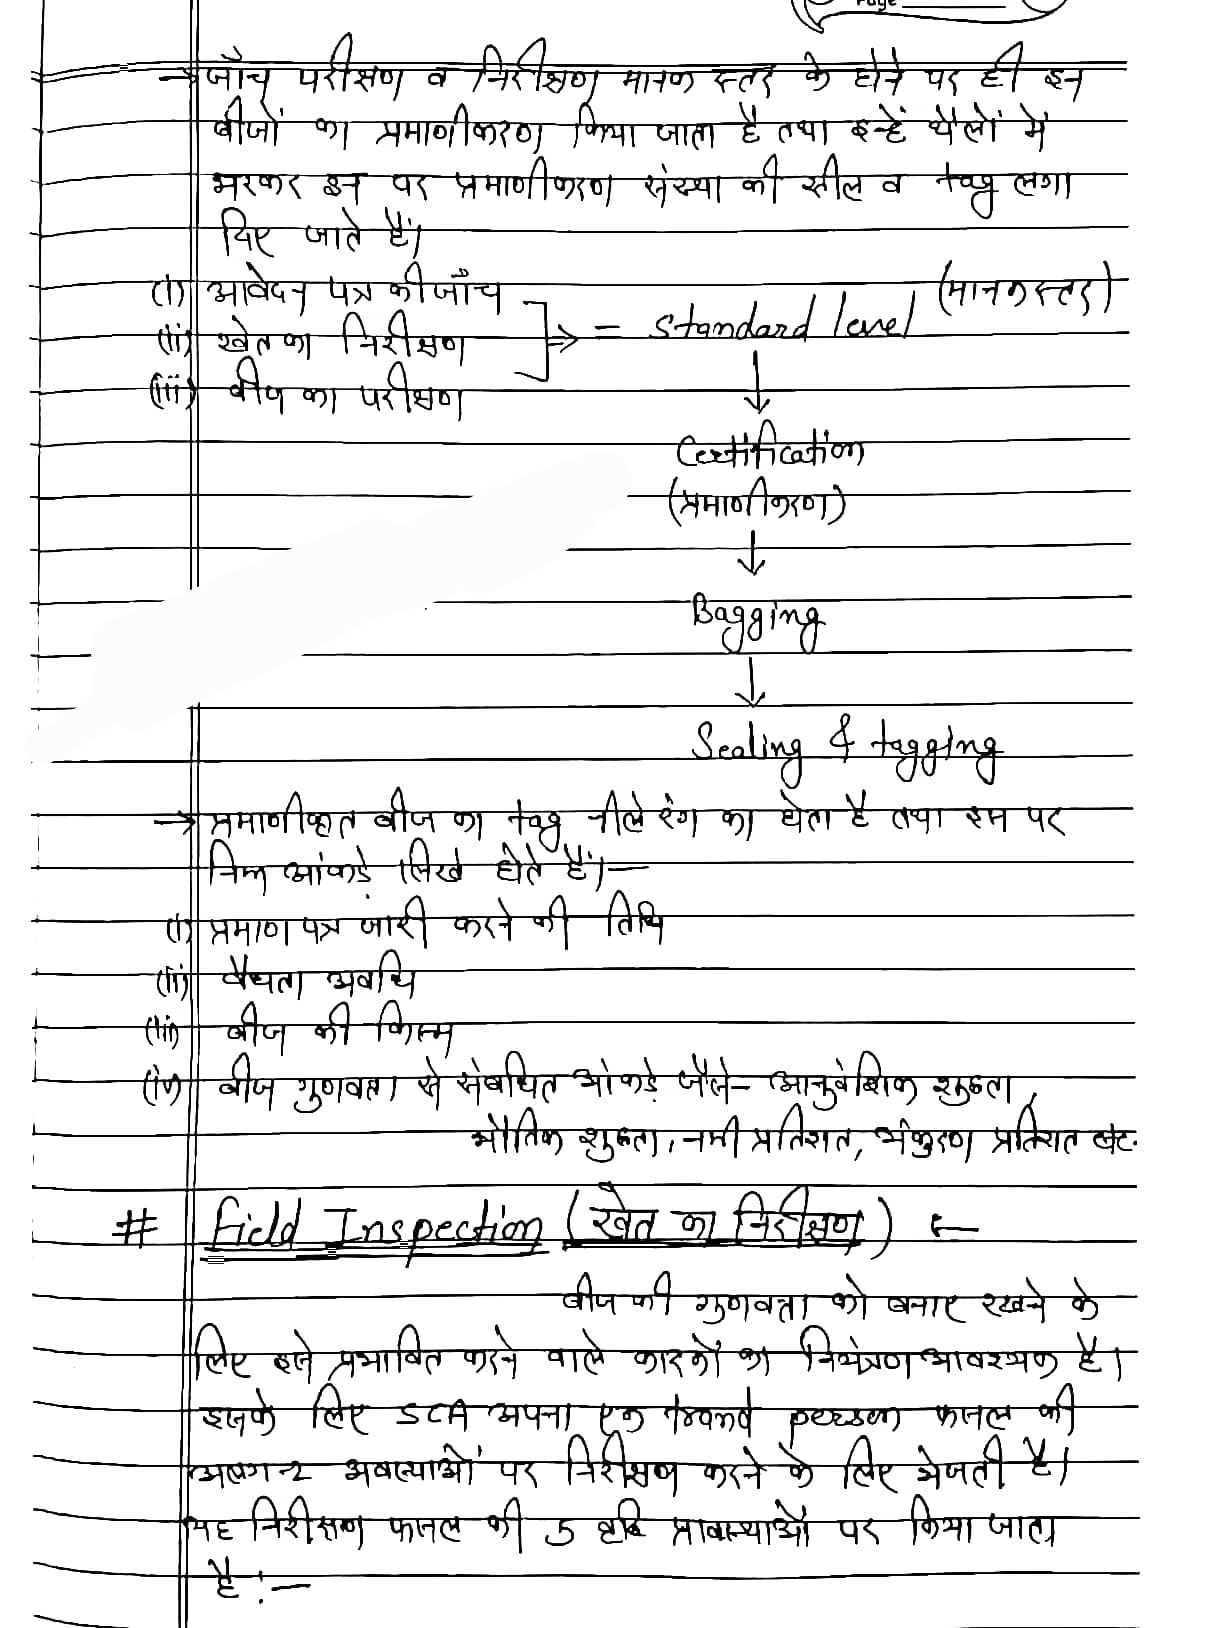 Page
→ जाँच परीक्षण व निरीक्षण मानक स्तर के होने पर ही इन
बीजों का प्रमाणीकरण किया जाता है तथा इन्हें थैलों में
भरकर इन पर प्रमाणीकरण संस्था की सील व tag लगा
दिए जाते हैं।
(i) आवेदन पत्र की जाँच
(ii) खेत का निरीक्षण
(iii) बीज का परीक्षण
⇒ = Standard level (मानक स्तर)
↓
Certification
(प्रमाणीकरण)
↓
Bagging
↓
Sealing & tagging
→ प्रमाणीकृत बीज का tag नीले रंग का होता है तथा इस पर
निम्न आंकड़े लिखे होते हैं।—
(i) प्रमाण पत्र जारी करने की तिथि
(ii) वैधता अवधि
(iii) बीज की किस्म
(iv) बीज गुणवत्ता से संबंधित आंकड़े जैसे- आनुवंशिक शुद्धता,
भौतिक शुद्धता, नमी प्रतिशत, अंकुरण प्रतिशत
# Field Inspection (खेत का निरीक्षण) ←
बीज की गुणवत्ता को बनाए रखने के
लिए इसे प्रभावित करने वाले कारकों का नियंत्रण आवश्यक है।
इसके लिए SCA अपना एक person फसल की
अवस्थाओं पर निरीक्षण करने के लिए भेजती है।
यह निरीक्षण फसल की 5 वृद्धि प्रावस्थाओं पर किया जाता
है :—